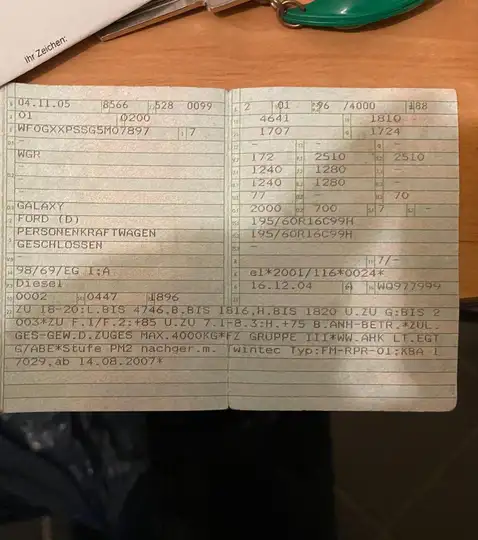 Ihr Zeichen:
04.11.05 8566 528 0099
01 0200
WF0GXXPSSG5M07897 7
-
WGR
-
-
GALAXY
FORD (D)
PERSONENKRAFTWAGEN
GESCHLOSSEN
-
98/69/EG I;A
Diesel
0002 0447 1896
2 01 96 /4000 188
4641 1810
1707 1724
- - -
172 2510 2510
1240 1280 -
1240 1280 -
77 - 70
2000 700 7 -
195/60R16C99H
195/60R16C99H
-
- 7/-
e1*2001/116*0024*
16.12.04 A WQ977999
ZU 18-20:L.BIS 4746,B.BIS 1816,H.BIS 1820 U.ZU G:BIS 2
003*ZU F.1/F.2:+85 U.ZU 7.1-8.3:H.+75 B.ANH-BETR.*ZUL.
GES-GEW.D.ZUGES MAX.4000KG*FZ GRUPPE III*WW.AHK LT.EGT
G/ABE*Stufe PM2 nachger.m. Twintec Typ:FM-RPR-01;KBA 1
7029,ab 14.08.2007*